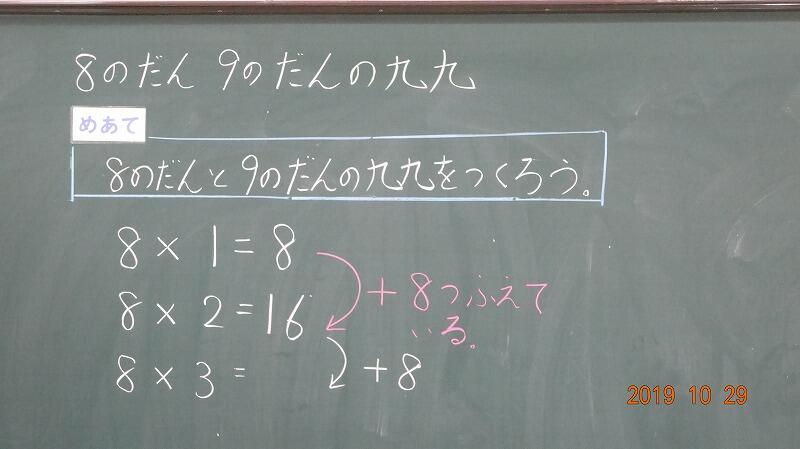 8のだん 9のだんの九九
めあて
8のだんと9のだんの九九をつくろう。
8 × 1 = 8
+ 8つふえて
いる。
8 × 2 = 16
+ 8
8 × 3 =
2019 10 29